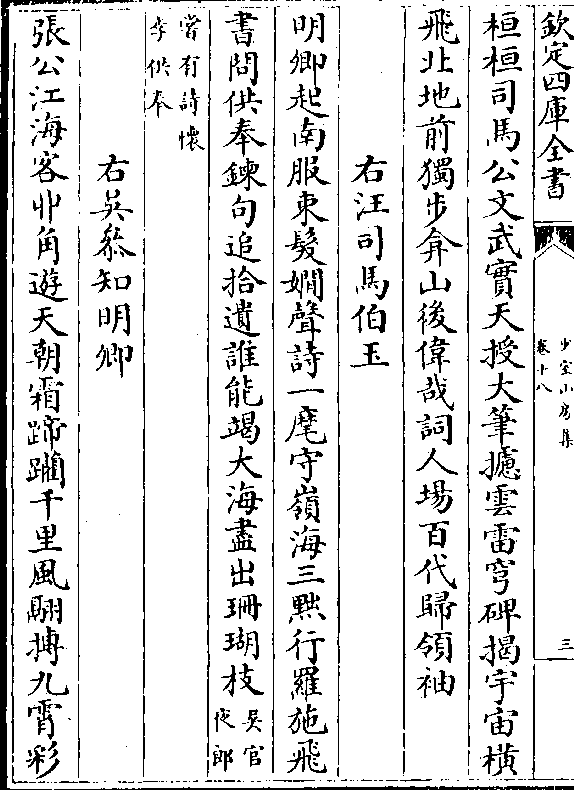 欽定四庫全書
少室山房集
卷十八
三
桓桓司馬公文武實天授大筆攄雲雷穹碑揭宇宙横
飛北地前獨步弇山後偉哉詞人場百代歸領袖
右汪司馬伯玉
明卿起南服束髮嫺聲詩一麾守嶺海三黜行羅施飛
書問供奉鍊句追拾遺誰能竭大海盡出珊瑚枝吳官夜郎
嘗有詩懷李供奉
右吳叅知明卿
張公江海客丱角遊天朝霜蹄躪千里風翮摶九霄彩